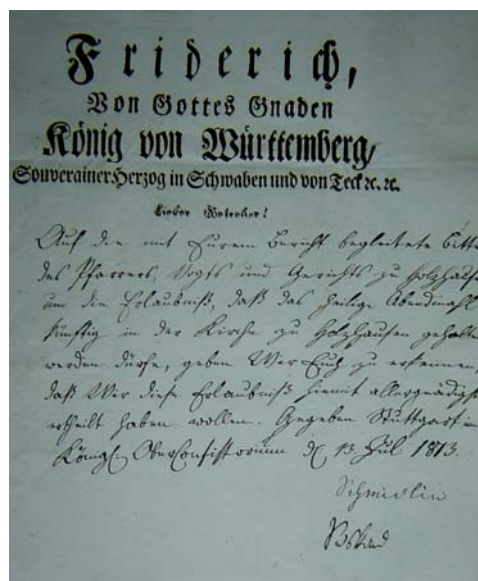 Friderich,
Von Gottes Gnaden
König von Württemberg,
Souverainer Herzog in Schwaben und von Teck ꝛc. ꝛc.
Lieber Getreuer!
Auf die mit Eurem Bericht begleitete Bitte
des Pfarrers, Vogts und Gerichts zu Holzhause
um die Erlaubniß, daß das heilige Abendmahl
künftig in der Kirche zu Holzhausen gehalte
werden dürfe, geben Wir Euch zu erkennen,
daß Wir diese Erlaubniß hiemit allergnädigst
ertheilt haben wollen. Gegeben Stuttgart im
Königl. Oberconsistorium d. 13. Jul. 1813.
Schmidlin